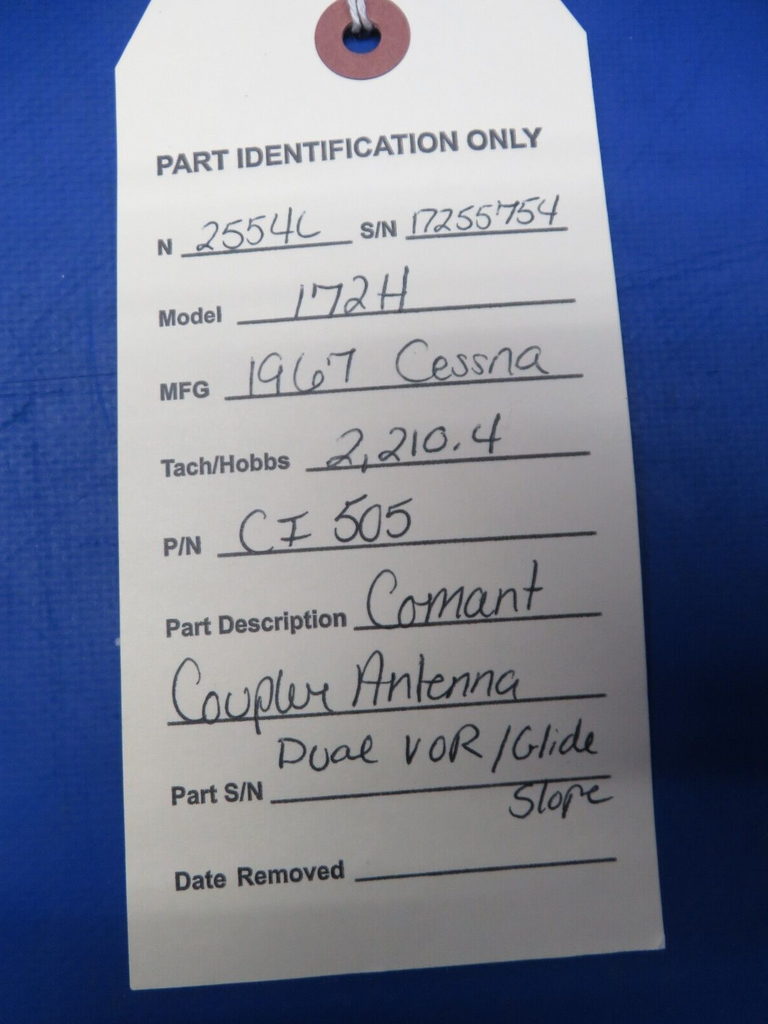 PART IDENTIFICATION ONLY
N 2554L S/N 17255754
Model 172H
MFG 1967 Cessna
Tach/Hobbs 2,210.4
P/N CI 505
Part Description Comant
Coupler Antenna
Dual VOR/Glide
Part S/N Slope
Date Removed